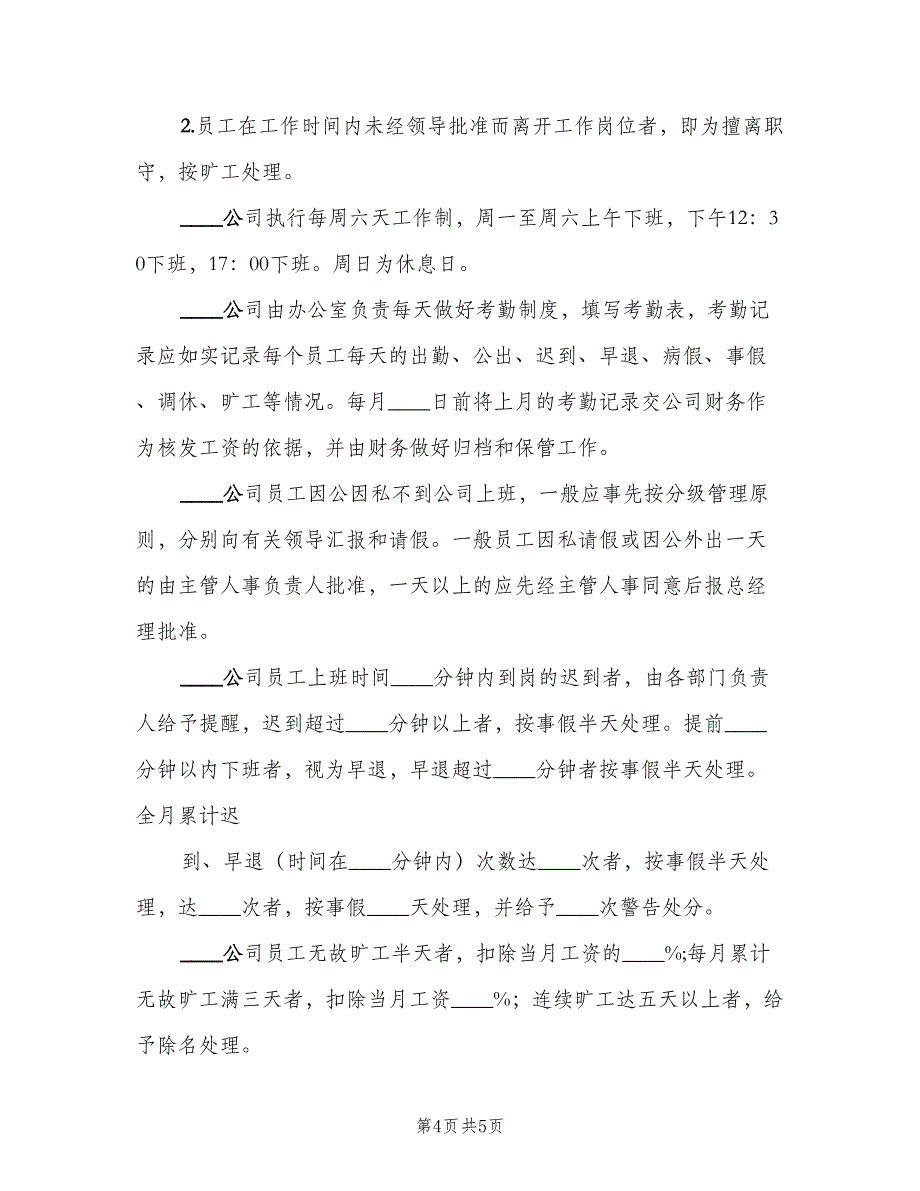 2.员工在工作时间内未经领导批准而离开工作岗位者，即为擅离职
守，按旷工处理。
____公司执行每周六天工作制，周一至周六上午下班，下午12：3
0下班，17：00下班。周日为休息日。
____公司由办公室负责每天做好考勤制度，填写考勤表，考勤记
录应如实记录每个员工每天的出勤、公出、迟到、早退、病假、事假
、调休、旷工等情况。每月____日前将上月的考勤记录交公司财务作
为核发工资的依据，并由财务做好归档和保管工作。
____公司员工因公因私不到公司上班，一般应事先按分级管理原
则，分别向有关领导汇报和请假。一般员工因私请假或因公外出一天
的由主管人事负责人批准，一天以上的应先经主管人事同意后报总经
理批准。
____公司员工上班时间____分钟内到岗的迟到者，由各部门负责
人给予提醒，迟到超过____分钟以上者，按事假半天处理。提前____
分钟以内下班者，视为早退，早退超过____分钟者按事假半天处理。
全月累计迟
到、早退（时间在____分钟内）次数达____次者，按事假半天处
理，达____次者，按事假____天处理，并给予____次警告处分。
____公司员工无故旷工半天者，扣除当月工资的____%;每月累计
无故旷工满三天者，扣除当月工资____%；连续旷工达五天以上者，给
予除名处理。
第4页共5页